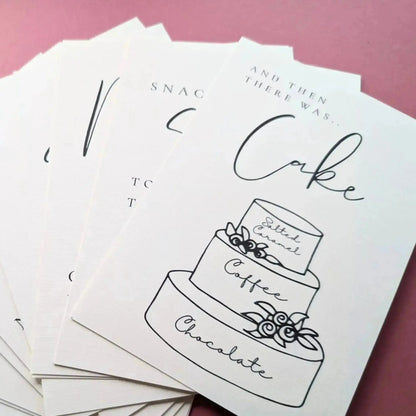 AND THEN
THERE WAS..
Cake
Salted
Caramel
Coffee
Chocolate
SNAC
TO
T